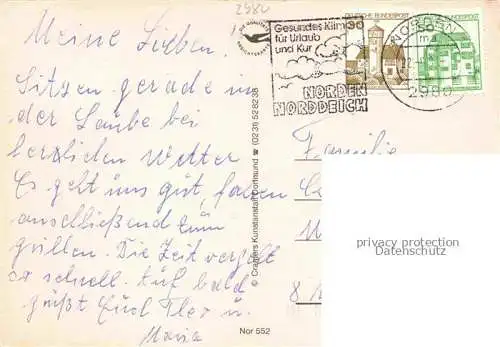 2980
Meine Lieben!
Sitzen gerade in
der Laube bei
herrlichen Wetter
Es geht uns gut, haben
anschließend zum
grillen. Die Zeit vergeht
so schnell. Auf bald
grüßt Euch Theo u.
Maria
Gesundes Klima
für Urlaub
und Kur
NORDEN
NORDDEICH
DEUTSCHE BUNDESPOST
30
NORDEN
2980
Familie
© Cramers Kunstanstalt Dortmund ☎ (0231) 528238
Nor 552
8
privacy protection
Ansichtskartenhandel.de